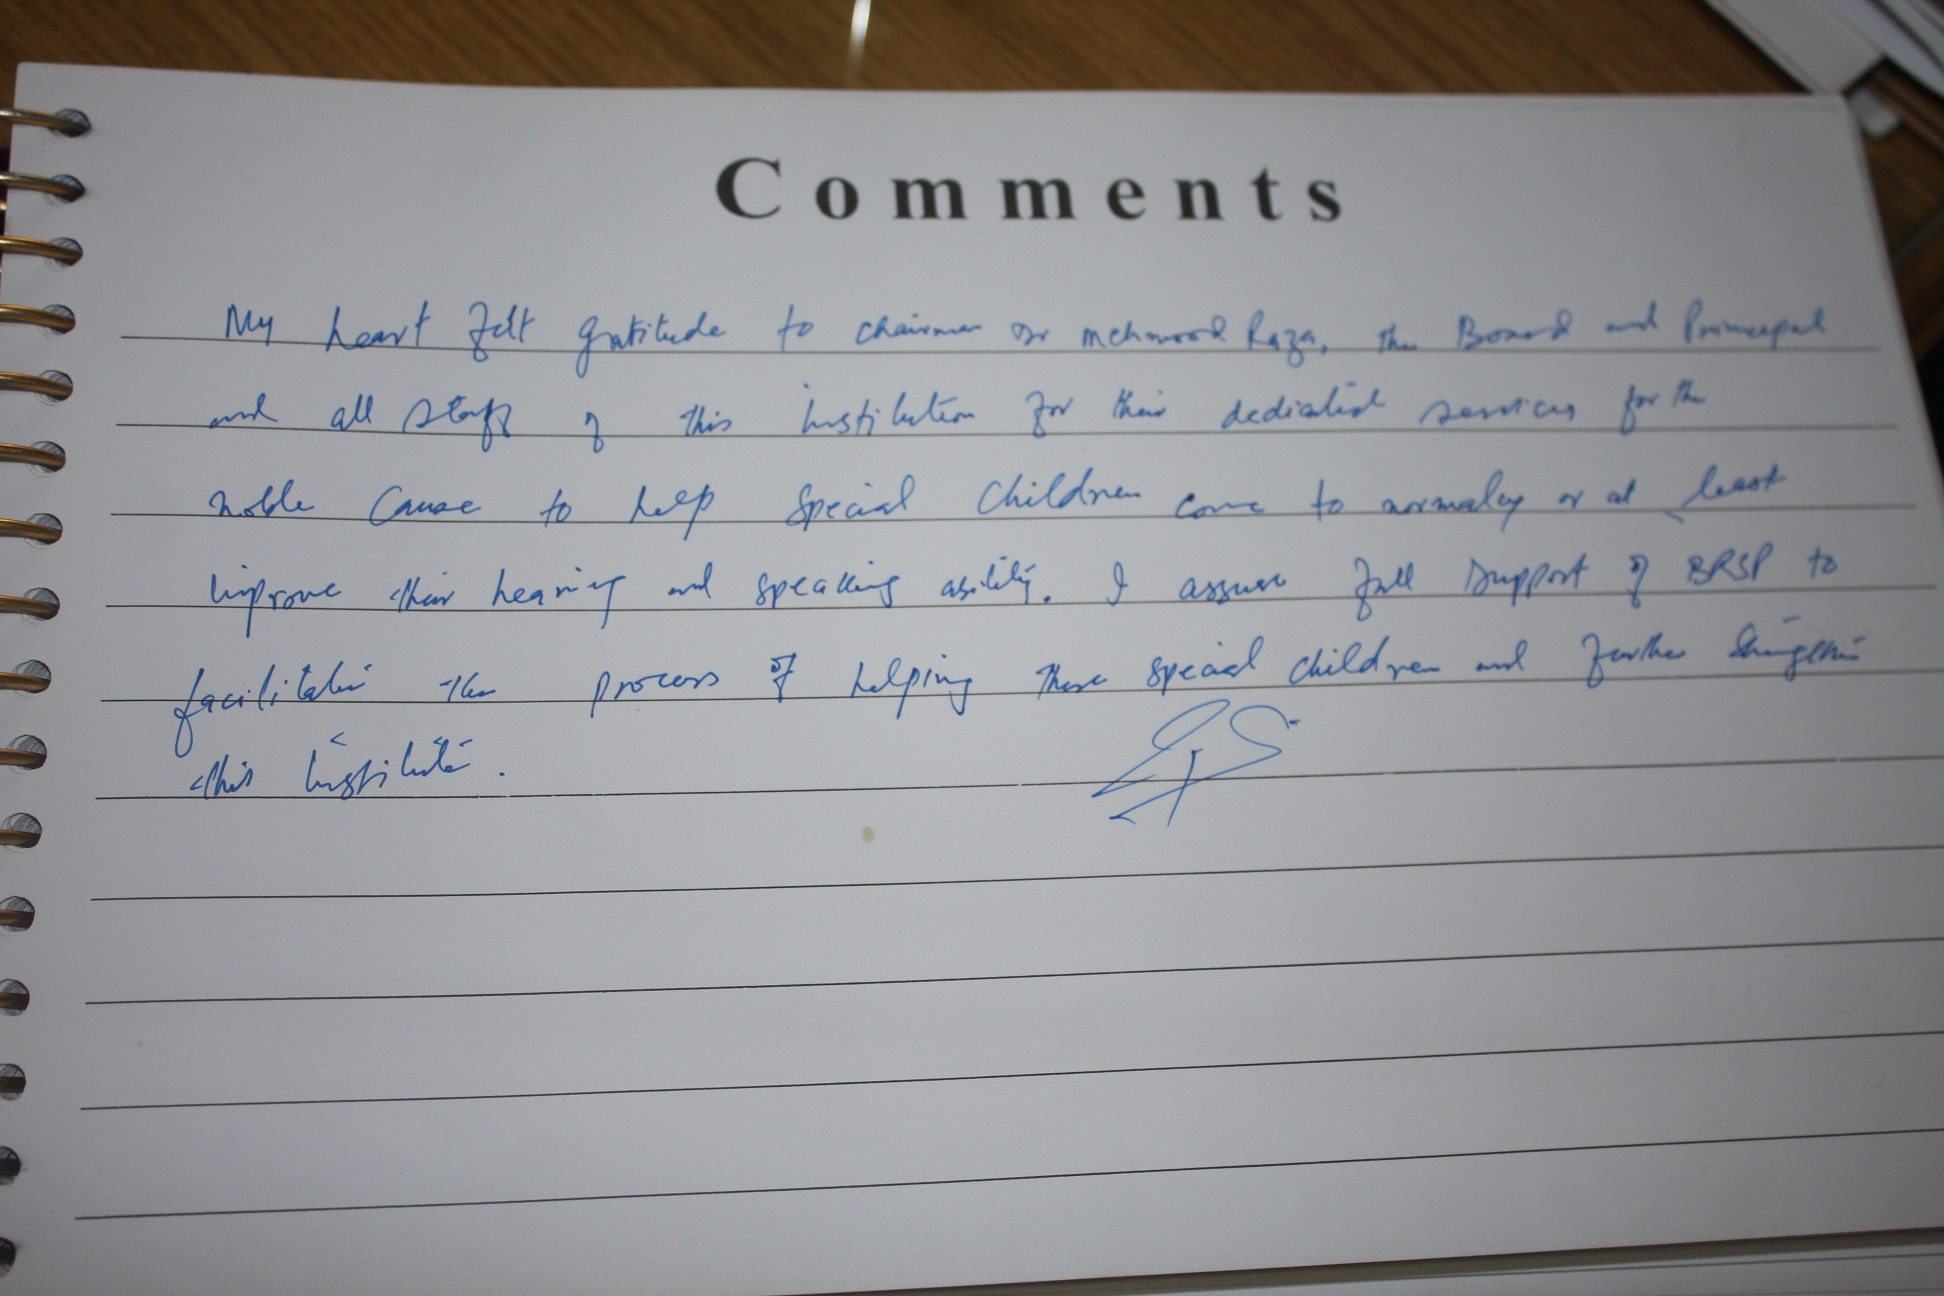 Comments
My heart felt gratitude to chairman Dr Mehmood Raza, the Board and Principal
and all staff of this institution for their dedicated services for the
noble cause to help special children come to normalcy or at least
improve their hearing and speaking ability. I assure full support of BRSP to
facilitate the process of helping these special children and further
this institute.